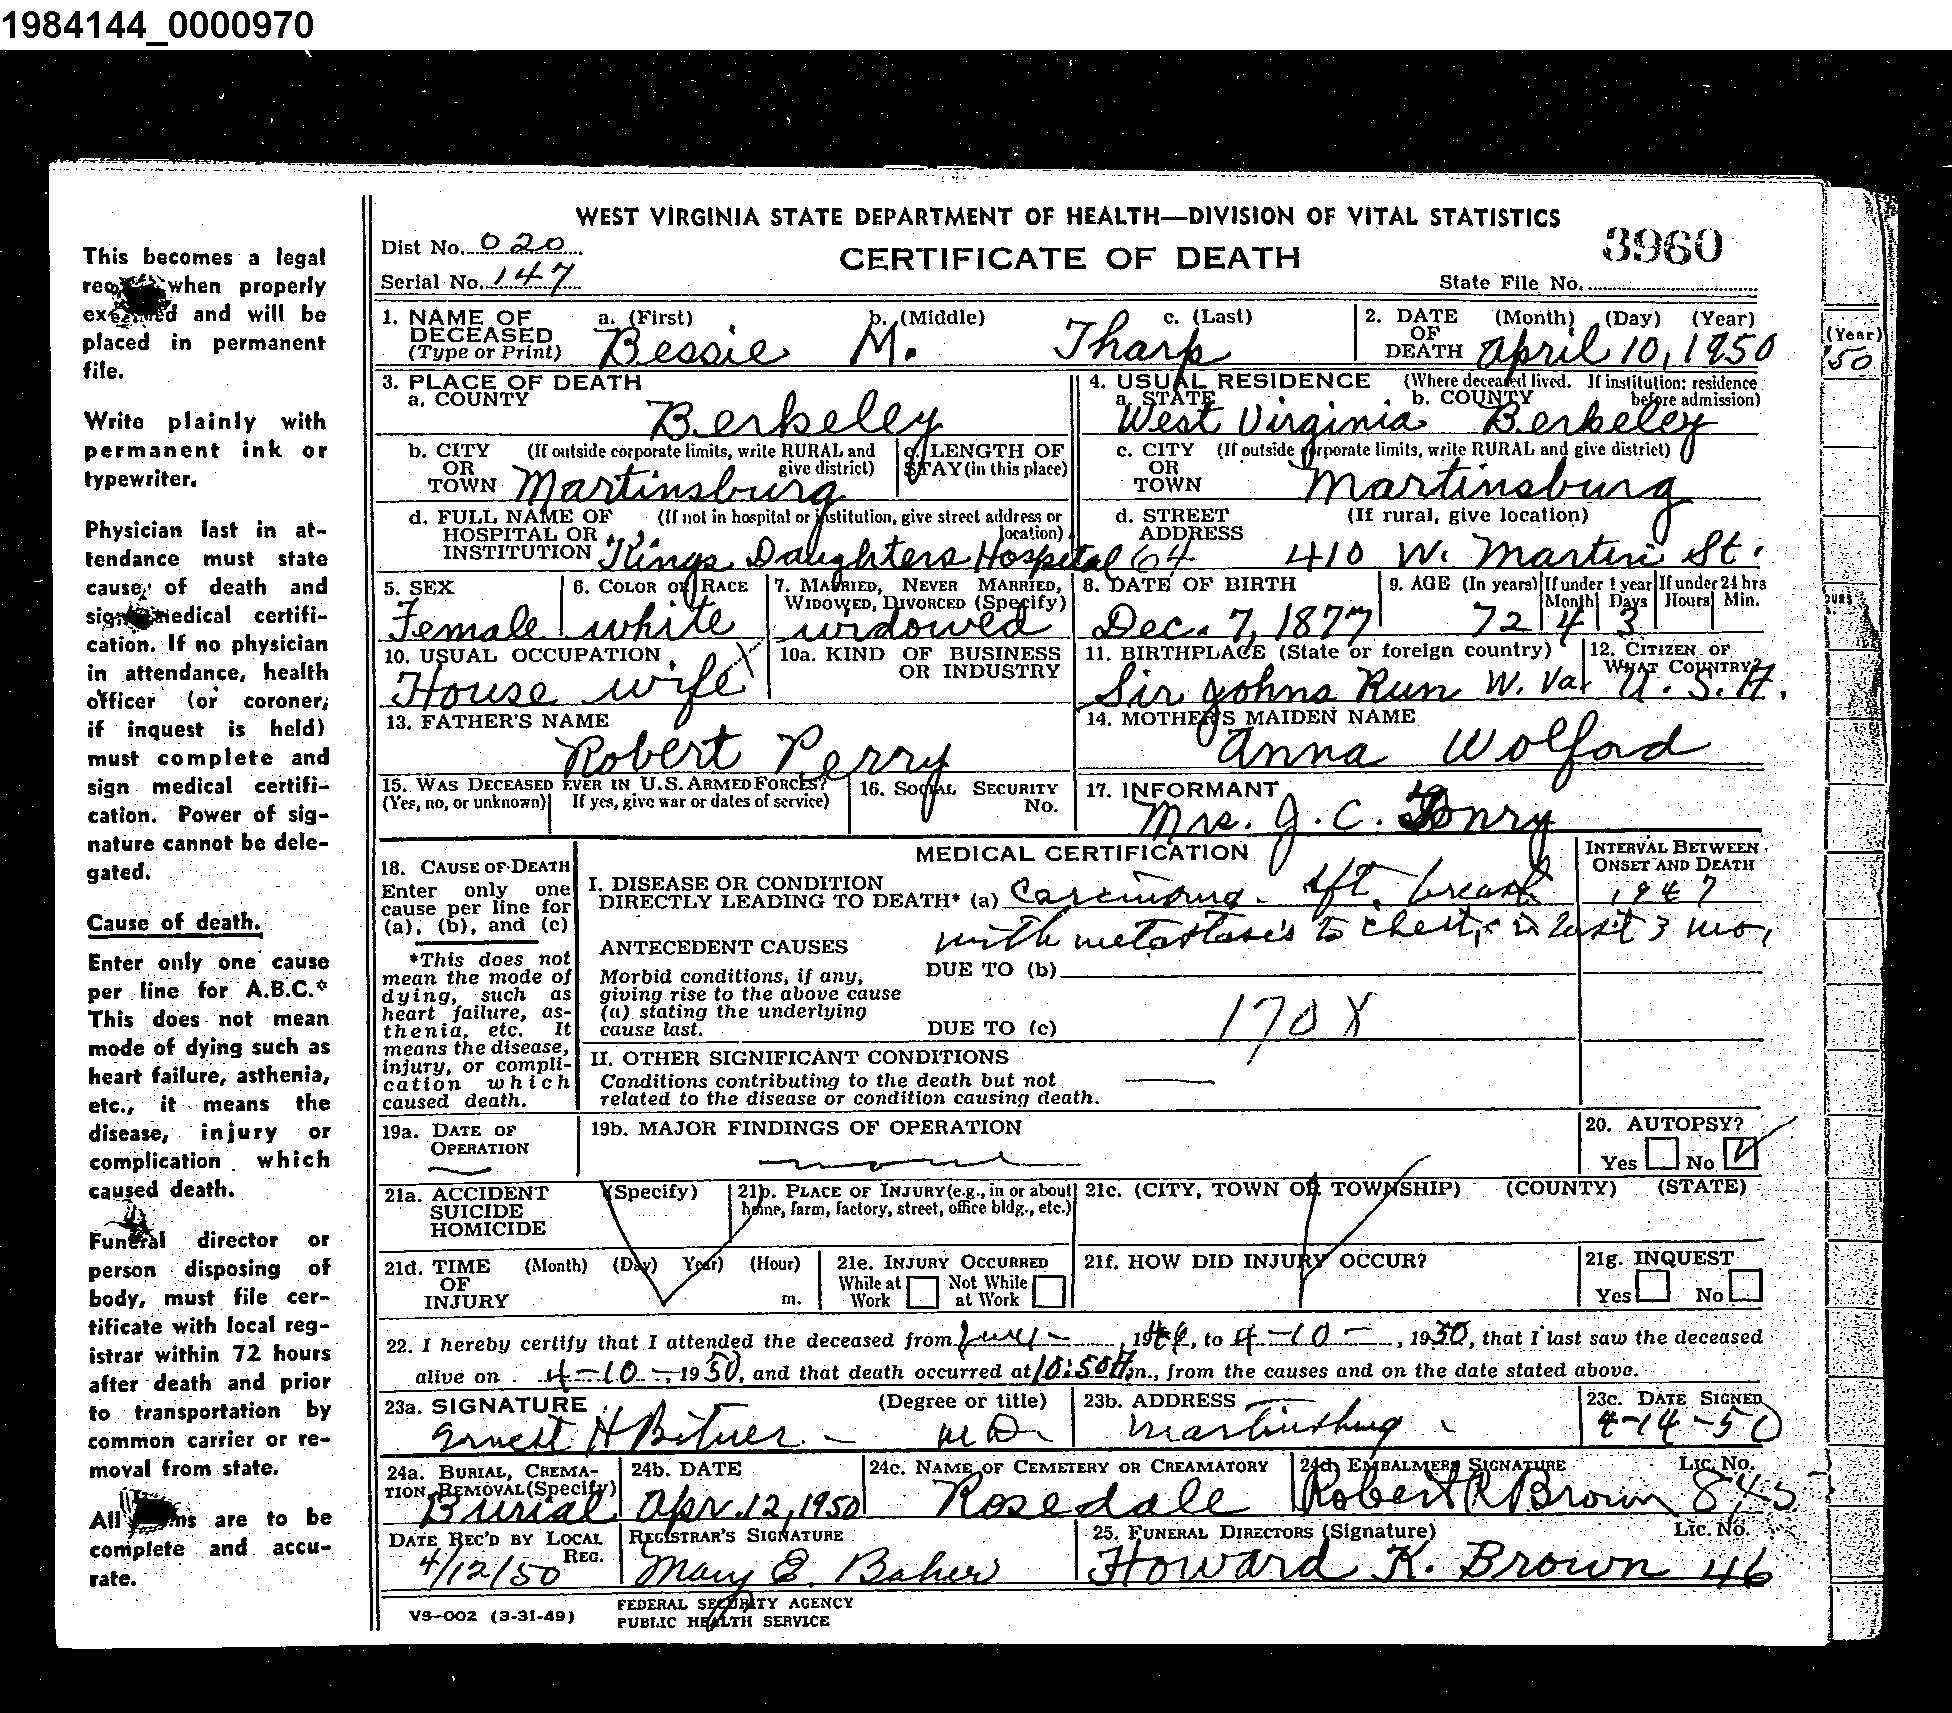 1984144_0000970
WEST VIRGINIA STATE DEPARTMENT OF HEALTH—DIVISION OF VITAL STATISTICS
Dist No. 020
CERTIFICATE OF DEATH
3960
Serial No. 147
State File No.
1. NAME OF DECEASED (Type or Print) a. (First) b. (Middle) c. (Last)
Bessie M. Tharp
2. DATE OF DEATH (Month) (Day) (Year)
April 10, 1950
(Year)
50
3. PLACE OF DEATH
a. COUNTY
Berkeley
4. USUAL RESIDENCE (Where deceased lived. If institution: residence before admission)
a. STATE b. COUNTY
West Virginia Berkeley
b. CITY OR TOWN (If outside corporate limits, write RURAL and give district)
Martinsburg
c. LENGTH OF STAY (in this place)
c. CITY OR TOWN (If outside corporate limits, write RURAL and give district)
Martinsburg
d. FULL NAME OF HOSPITAL OR INSTITUTION (If not in hospital or institution, give street address or location)
Kings Daughters Hospital 64
d. STREET ADDRESS (If rural, give location)
410 W. Martin St.
5. SEX
Female
6. COLOR OR RACE
white
7. MARRIED, NEVER MARRIED, WIDOWED, DIVORCED (Specify)
widowed
8. DATE OF BIRTH
Dec. 7, 1877
9. AGE (In years) If under 1 year If under 24 hrs
Month Days Hours Min.
72 4 3
10. USUAL OCCUPATION
House wife X
10a. KIND OF BUSINESS OR INDUSTRY
11. BIRTHPLACE (State or foreign country)
Sir Johns Run W. Va.
12. CITIZEN OF WHAT COUNTRY?
U. S. A.
13. FATHER'S NAME
Robert Perry
14. MOTHER'S MAIDEN NAME
Anna Wolford
15. WAS DECEASED EVER IN U.S. ARMED FORCES?
(Yes, no, or unknown) If yes, give war or dates of service)
16. SOCIAL SECURITY No.
17. INFORMANT
Mrs. J. C. Tonry
MEDICAL CERTIFICATION
INTERVAL BETWEEN ONSET AND DEATH
18. CAUSE OF DEATH
Enter only one cause per line for (a), (b), and (c)
*This does not mean the mode of dying, such as heart failure, asthenia, etc. It means the disease, injury, or complication which caused death.
I. DISEASE OR CONDITION
DIRECTLY LEADING TO DEATH* (a) Carcinoma. lft. breast
1947
with metastasis to chest, in last 3 mo.
ANTECEDENT CAUSES
DUE TO (b)
Morbid conditions, if any, giving rise to the above cause (a) stating the underlying cause last.
DUE TO (c)
170 X
II. OTHER SIGNIFICANT CONDITIONS
Conditions contributing to the death but not related to the disease or condition causing death.
19a. DATE OF OPERATION
19b. MAJOR FINDINGS OF OPERATION
20. AUTOPSY?
Yes No
21a. ACCIDENT SUICIDE HOMICIDE (Specify)
21b. PLACE OF INJURY (e.g., in or about home, farm, factory, street, office bldg., etc.)
21c. (CITY, TOWN OR TOWNSHIP) (COUNTY) (STATE)
21d. TIME OF INJURY (Month) (Day) Year) (Hour) m.
21e. INJURY OCCURRED
While at Work Not While at Work
21f. HOW DID INJURY OCCUR?
21g. INQUEST
Yes No
22. I hereby certify that I attended the deceased from , 19 , to 4-10-, 1950, that I last saw the deceased
alive on 4-10-, 1950, and that death occurred at 10:50 A m., from the causes and on the date stated above.
23a. SIGNATURE (Degree or title)
Ernest H Bitner M.D.
23b. ADDRESS
Martinsburg
23c. DATE SIGNED
4-14-50
24a. BURIAL, CREMATION, REMOVAL (Specify)
Burial
24b. DATE
Apr. 12, 1950
24c. NAME OF CEMETERY OR CREAMATORY
Rosedale
24d. EMBALMERS SIGNATURE Lic. No.
Robert R Brown 845
DATE REC'D BY LOCAL REG.
4/12/50
REGISTRAR'S SIGNATURE
Mary E. Baker
25. FUNERAL DIRECTORS (Signature) Lic. No.
Howard K. Brown 46
VS-002 (3-31-49)
FEDERAL SECURITY AGENCY
PUBLIC HEALTH SERVICE
This becomes a legal
when properly
and will be
placed in permanent
file.
Write plainly with
permanent ink or
typewriter.
Physician last in at-
tendance must state
cause of death and
sign medical certifi-
cation. If no physician
in attendance, health
officer (or coroner,
if inquest is held)
must complete and
sign medical certifi-
cation. Power of sig-
nature cannot be dele-
gated.
Cause of death.
Enter only one cause
per line for A.B.C.*
This does not mean
mode of dying such as
heart failure, asthenia,
etc., it means the
disease, injury or
complication which
caused death.
Funeral director or
person disposing of
body, must file cer-
tificate with local reg-
istrar within 72 hours
after death and prior
to transportation by
common carrier or re-
moval from state.
All are to be
complete and accu-
rate.